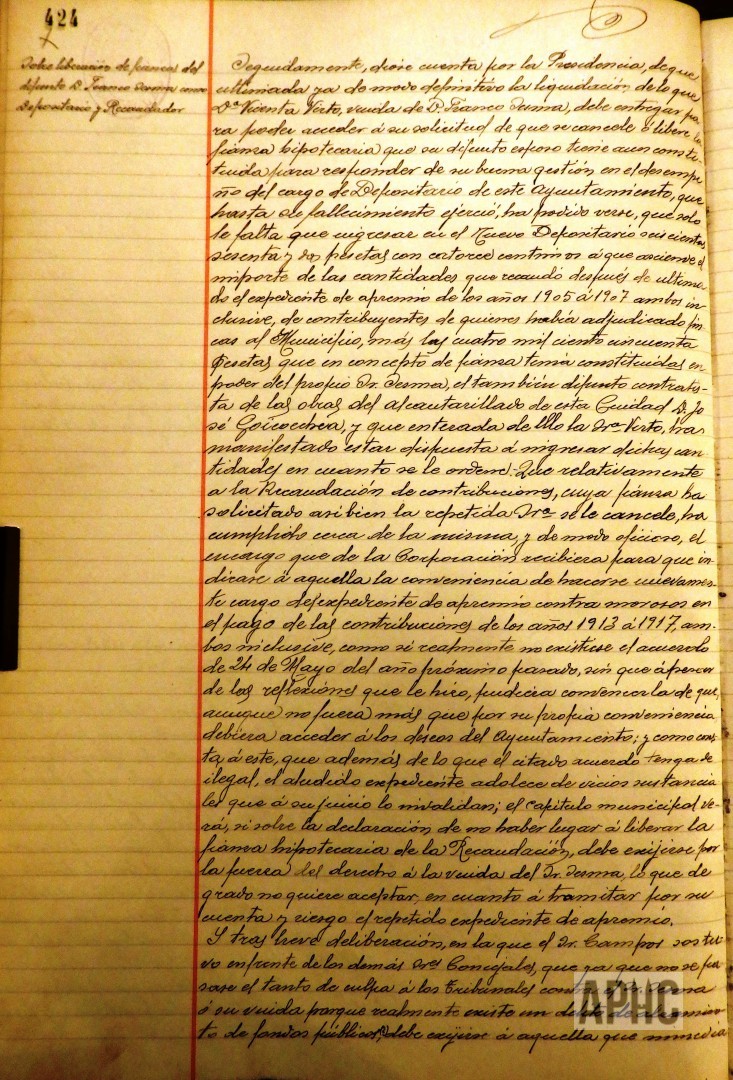 424
Sobre liberación de fianza del
difunto D. Franco Lerma como
Depositario y Recaudador
Seguidamente, diose cuenta por la Presidencia, de que
ultimada ya de modo definitivo la liquidación de lo que
Dª Vicenta Virto, viuda de D. Franco Lerma, debe entregar pa-
ra poder acceder á su solicitud de que se cancele ó libere la
fianza hipotecaria que su difunto esposo tiene aun consti-
tuida para responder de su buena gestión en el desempe-
ño del cargo de Depositario de este Ayuntamiento, que
hasta su fallecimiento ejerció, ha podido verse, que solo
le falta que ingresar en el Nuevo Depositario seiscientas
sesenta y dos pesetas con catorce centimos á que asciende el
importe de las cantidades que recaudó después de ultima-
do el expediente de apremio de los años 1905 á 1907 ambos in-
clusive, de contribuyentes de quienes había adjudicado fin-
cas al Municipio, más las cuatro mil ciento cincuenta
pesetas que en concepto de fianza tenía constituidas en
poder del propio Sr. Lerma, el también difunto contratis-
ta de las obras del alcantarillado de esta Ciudad D. Jo-
sé Goicoechea, y que enterada de ello la Srª Virto, ha
manifestado estar dispuesta á ingresar dichas can-
tidades en cuanto se le ordene. Que relativamente
a la Recaudación de contribuciones, cuya fianza ha
solicitado asi bien la repetida Srª se le cancele, ha
cumplido cerca de la misma y de modo oficioso, el
encargo que de la Corporación recibiera para que in-
dicase á aquella la conveniencia de hacerse nuevamen-
te cargo del expediente de apremio contra morosos en
el pago de las contribuciones de los años 1913 á 1917, am-
bos inclusive, como si realmente no existiese el acuerdo
de 24 de Mayo del año próximo pasado, sin que á pesar
de las reflexiones que le hizo, pudiera convencerla de que,
aunque no fuera más que por su propia conveniencia
debiera acceder á los deseos del Ayuntamiento; y como cons-
ta, á este, que además de lo que el citado acuerdo tenga de
ilegal, el aludido expediente adolece de vicios sustancia-
les que á su juicio lo invalidan; el capitulo municipal ve-
rá, si sobre la declaración de no haber lugar á liberar la
fianza hipotecaria de la Recaudación, debe exijirse por
la fuerza del derecho á la viuda del Sr. Lerma, lo que de
grado no quiere aceptar, en cuanto á tramitar por su
cuenta y riesgo el repetido expediente de apremio.
Y tras breve deliberación, en la que el Sr. Campos sostu-
vo enfrente de los demás Sres Concejales, que ya que no se pa-
sase el tanto de culpa á los Tribunales contra el Sr. Lerma
ó su viuda porque realmente existe un delito de
to de fondos públicos, debe exijirse á aquella que
APHC